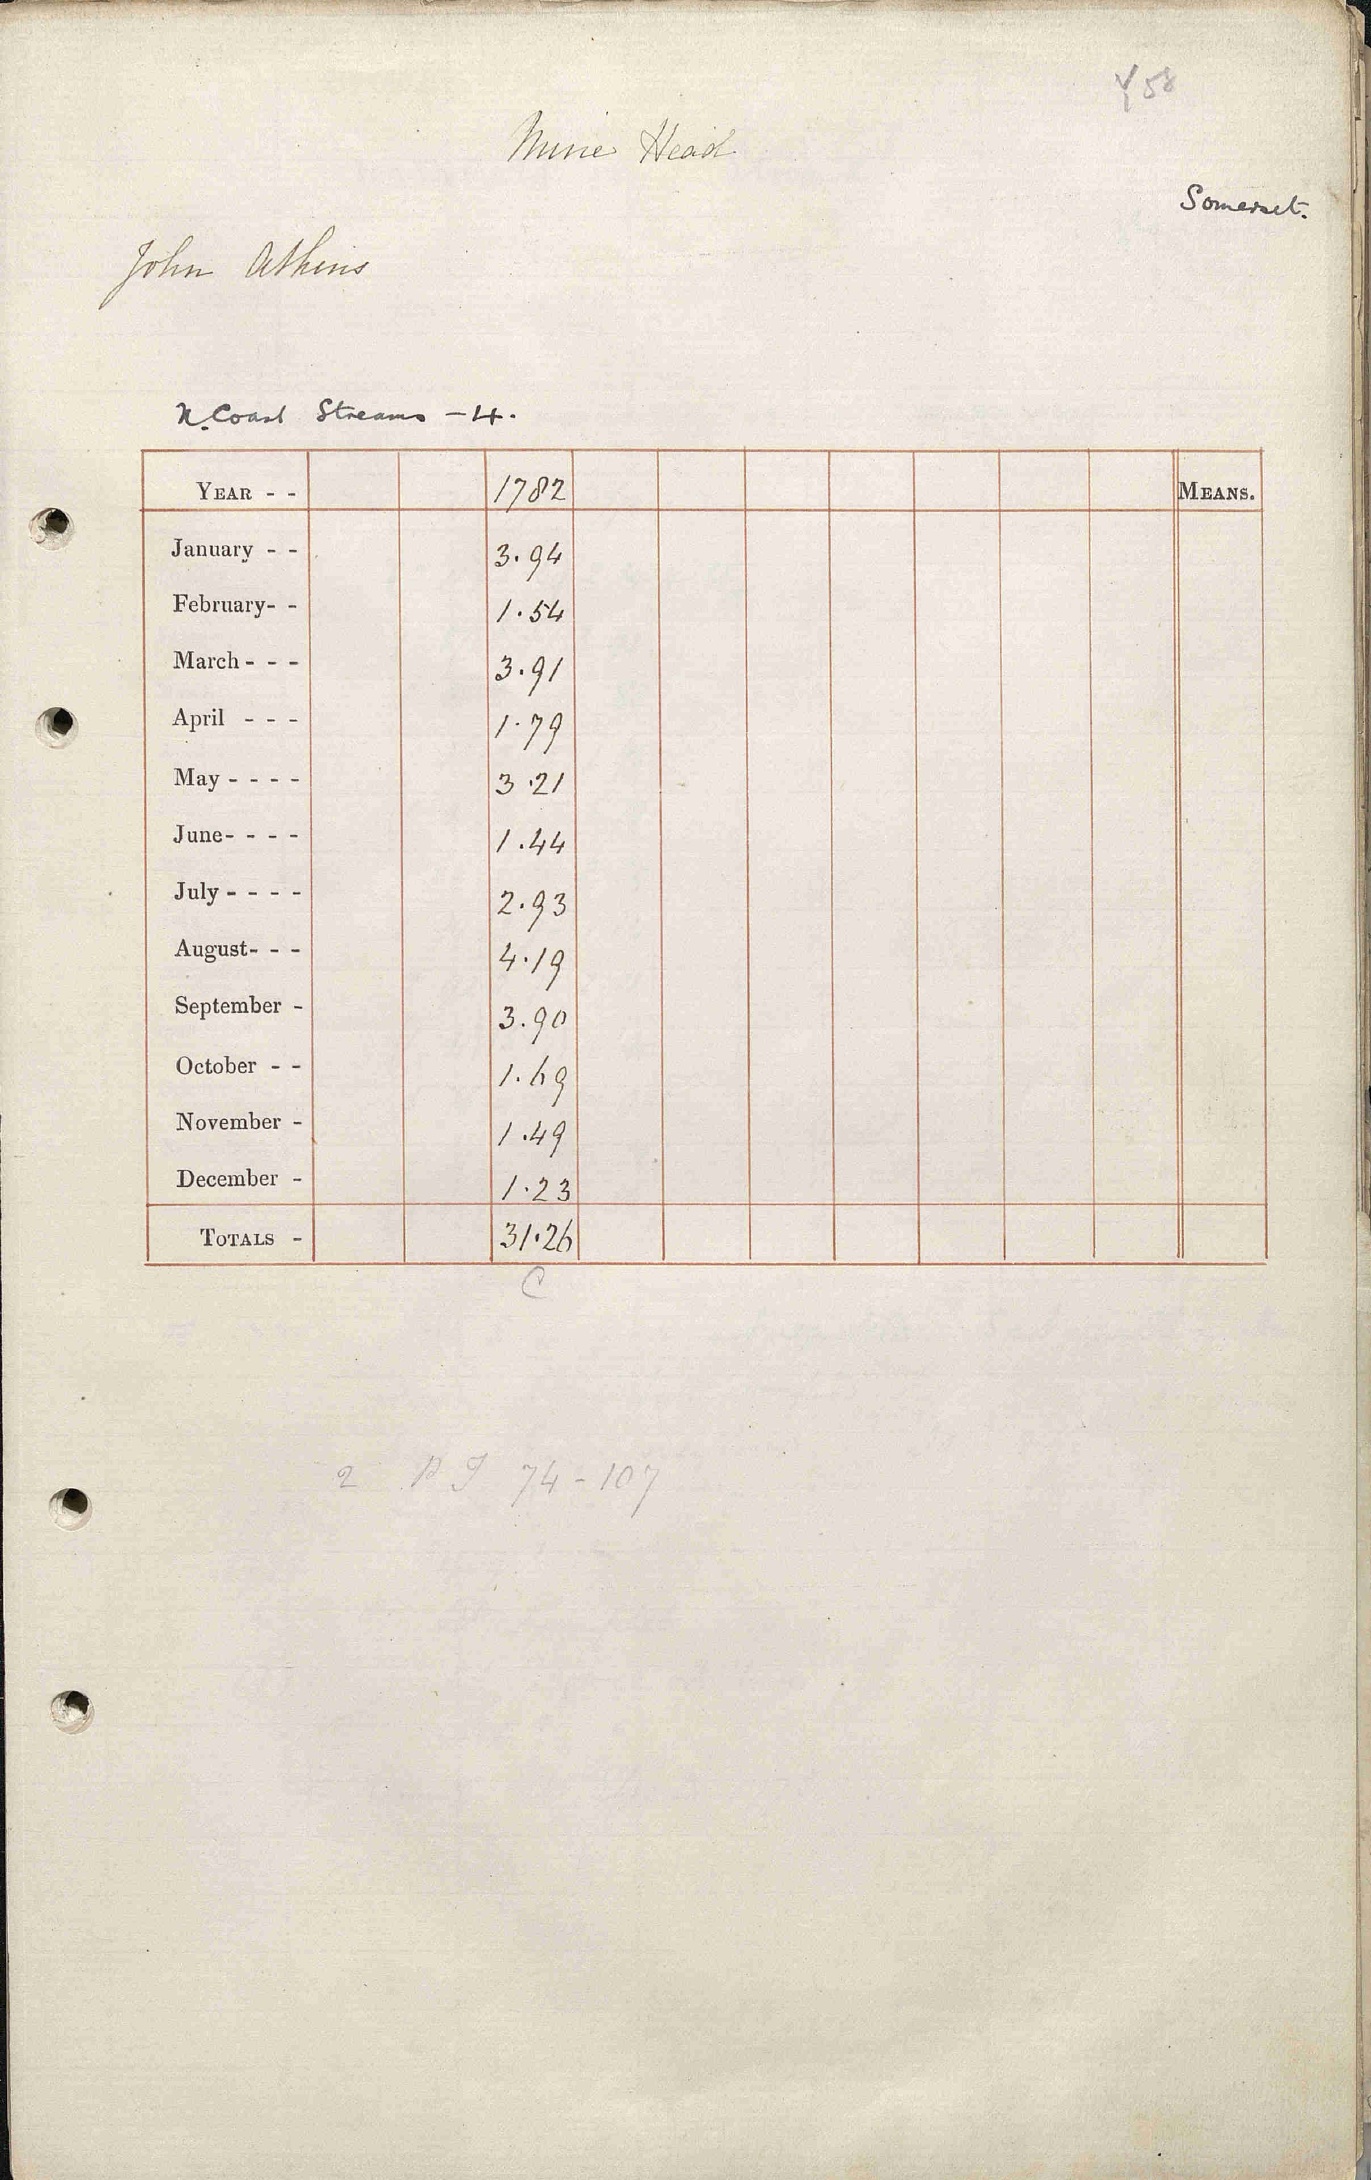 Y 58
Mine Head
Somerset.
John Atkins
N. Coast Streams - 4.
YEAR - - 1782 MEANS.
January - - 3.94
February - - 1.54
March - - - 3.91
April - - - 1.79
May - - - - 3.21
June - - - - 1.44
July - - - - 2.93
August - - - 4.19
September - 3.90
October - - 1.69
November - 1.49
December - 1.23
TOTALS - 31.26
C
2 74-107